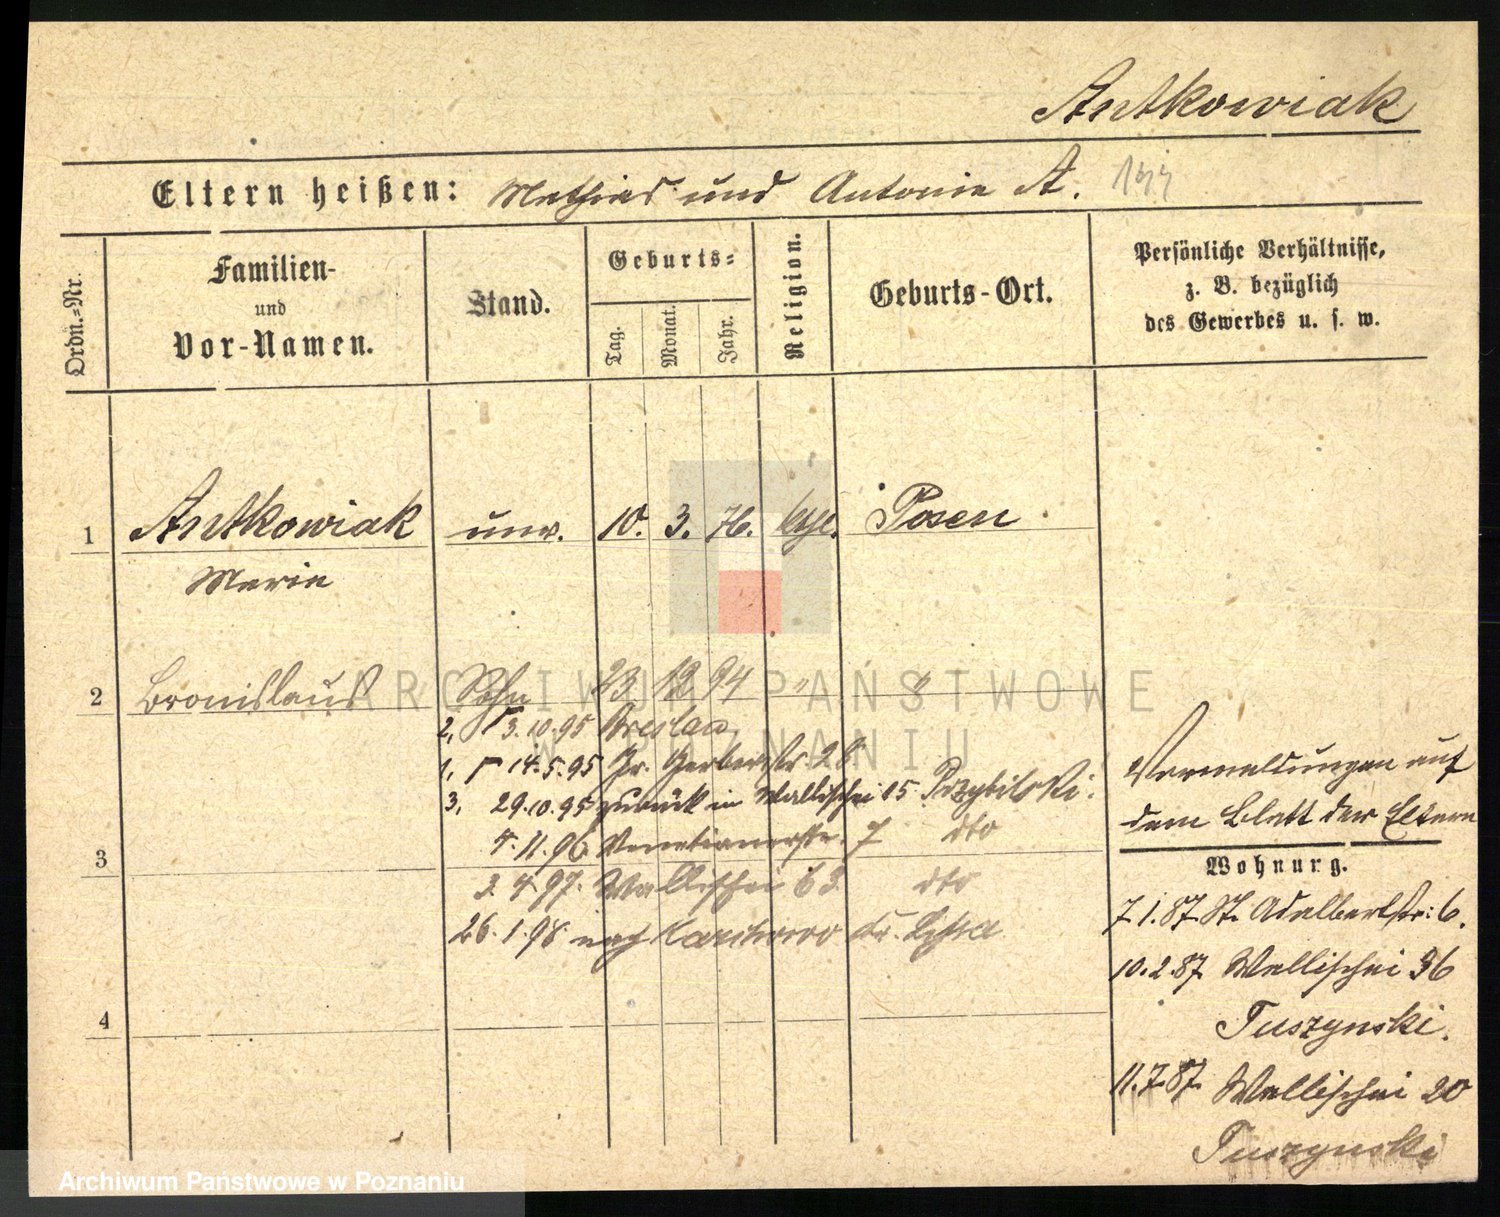 Antkowiak
Eltern heißen: Mathias und Antonie A. 144
Ordn.=Nr.
Familien-
und
Vor-Namen.
Stand.
Geburts=
Tag.
Monat.
Jahr.
Religion.
Geburts-Ort.
Persönliche Verhältnisse,
z. B. bezüglich
des Gewerbes u. s. w.
1 Antkowiak unv. 10. 3. 76. kthl. Posen
Marie
2 Bronislaus Sohn 23 12 94 " "
2, 3.10.95 Breslau
1, 14.5.95 Gr. Gerberstr 28
3, 29.10.95 zurück in Wallischei 15 Przybilski.
3
4.11.96 Venetianerstr. 7 dto
3.4.97. Wallischei 63 dto
26.1.98 nach Kr. Lissa
4
Vermeldungen auf
dem Blatt der Eltern
Wohnung.
7.1.87. St. Adalbertstr: 6.
10.2.87. Wallischei 36
Tuszynski.
11.7.87. Wallischei 20
Tuszynski
ARCHIWUM PAŃSTWOWE
W POZNANIU
Archiwum Państwowe w Poznaniu